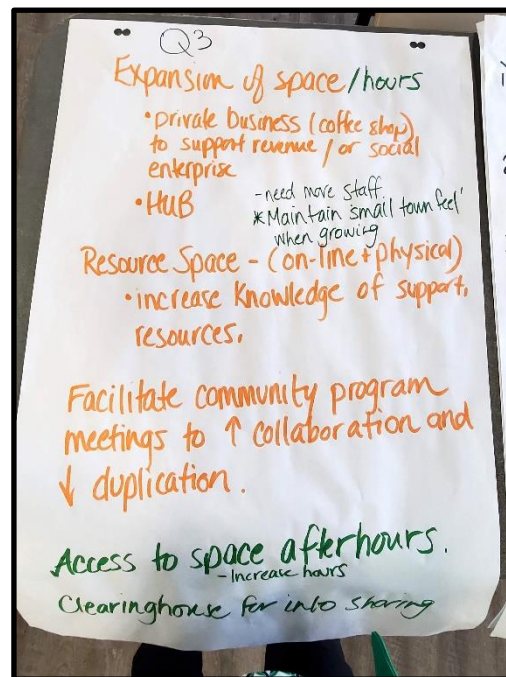 Q3
Expansion of space/hours
• private business (coffee shop)
to support revenue / or social
enterprise
• HUB
- need more staff
* Maintain 'small town feel'
when growing
Resource Space - (on-line + physical)
• increase Knowledge of support,
resources.
Facilitate community program
meetings to ↑ collaboration and
↓ duplication.
Access to space afterhours.
- Increase hours
Clearinghouse for info sharing